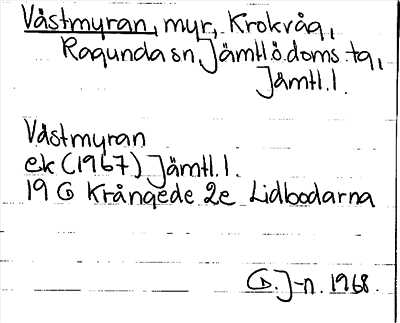 Västmyran, myr, Krokvåg,
Ragunda sn, Jämtl.ö.doms.tg,
Jämtl.l.
Västmyran
ek (1967) Jämtl.l.
19 G Krångede 2e Lidbodarna
G.J-n. 1968.